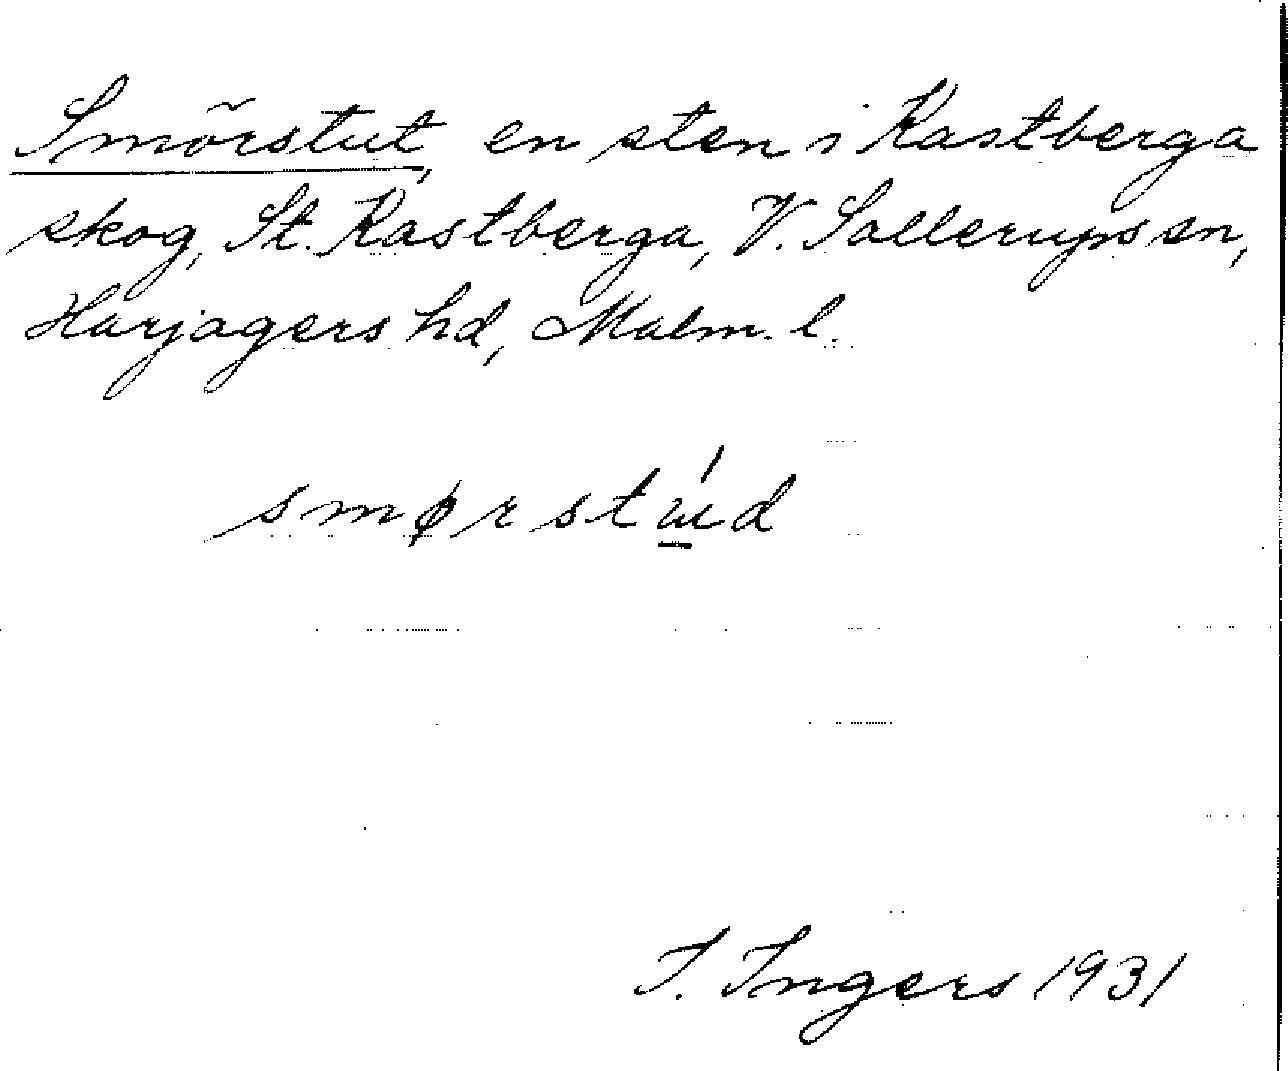 Smörstut, en sten i Rastberga
skog, St. Rastberga, V. Sallerups sn,
Harjagers hd, Malm. l.
smørstúd
I. Ingers 1931